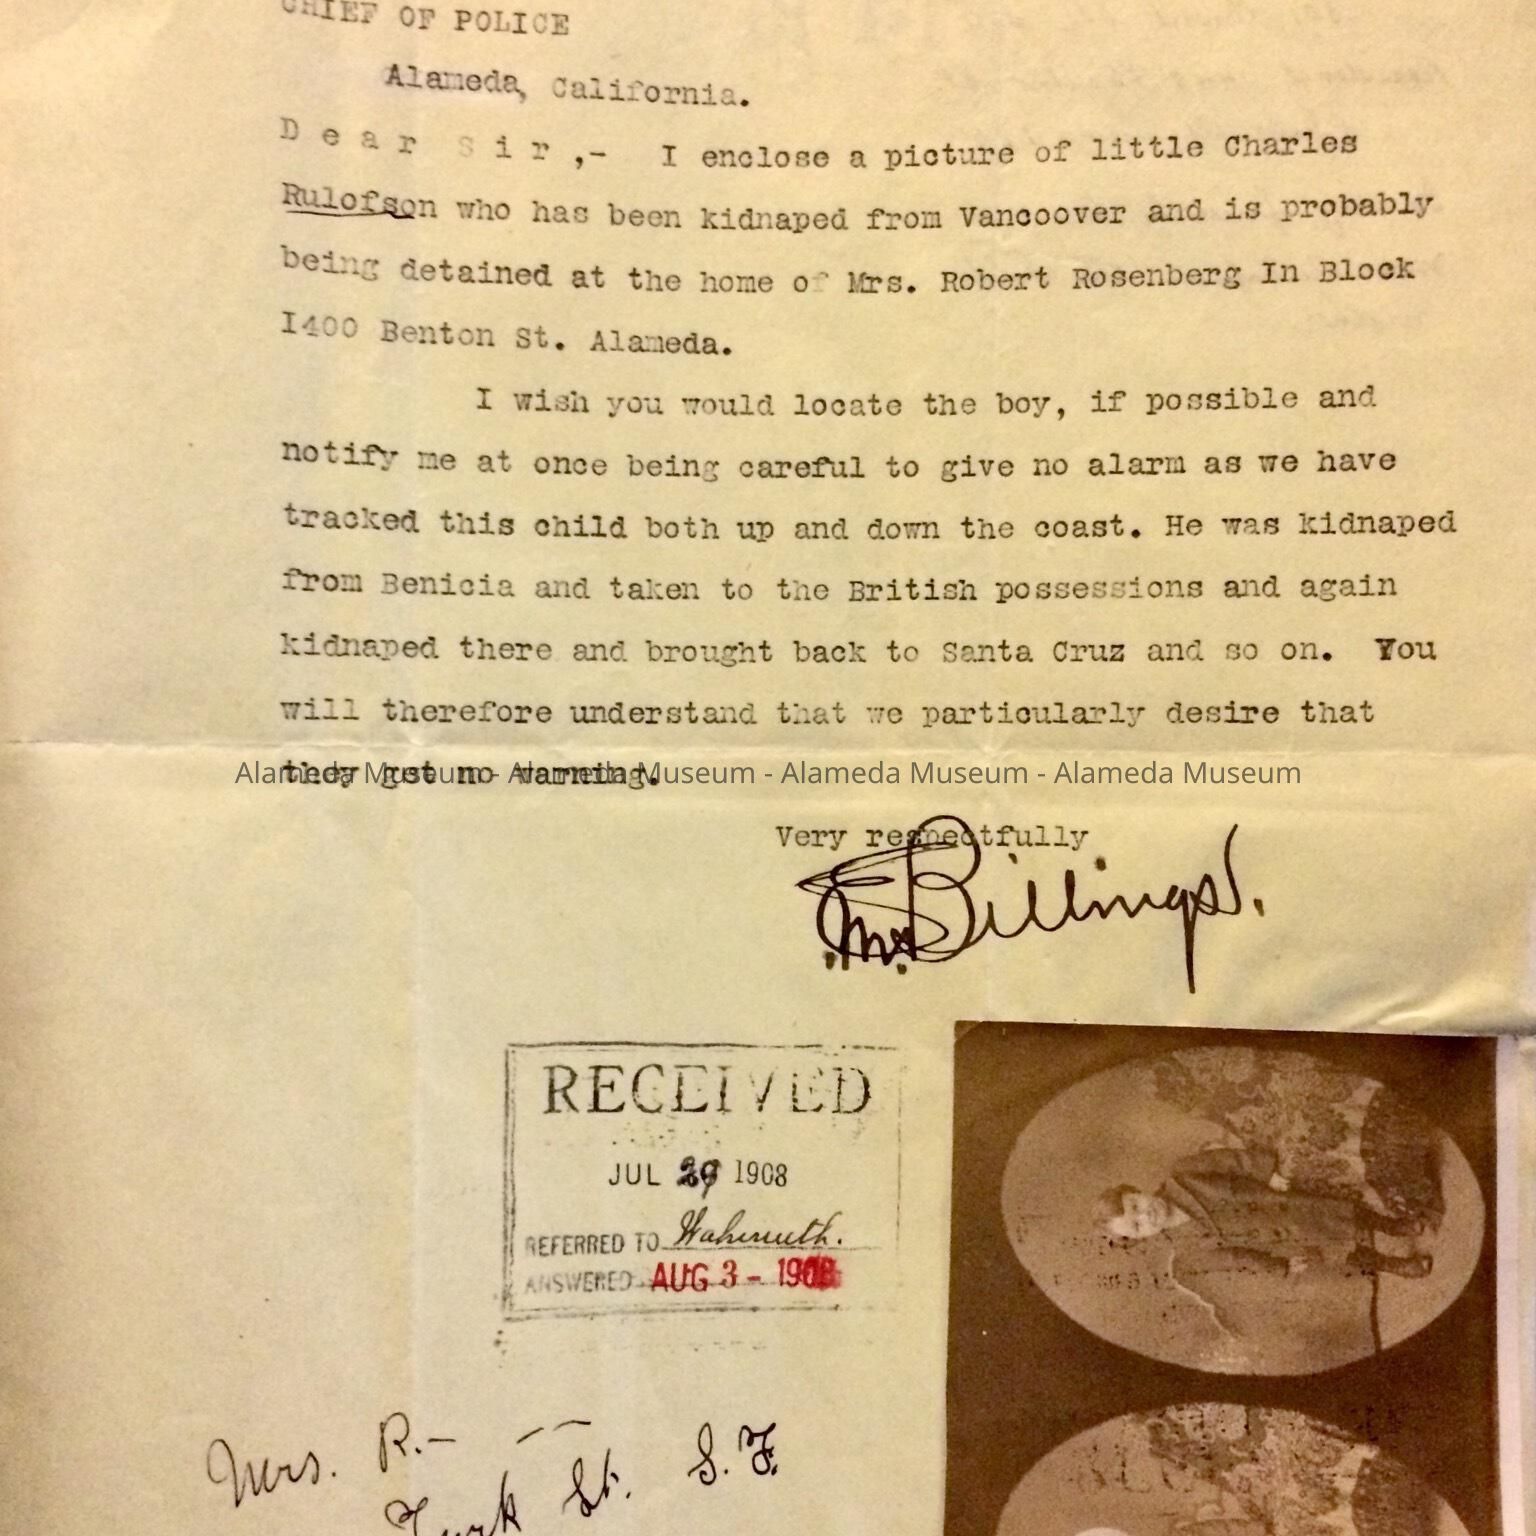 CHIEF OF POLICE
Alameda, California.
Dear Sir,- I enclose a picture of little Charles
Rulofson who has been kidnaped from Vancoover and is probably
being detained at the home of Mrs. Robert Rosenberg In Block
I400 Benton St. Alameda.
I wish you would locate the boy, if possible and
notify me at once being careful to give no alarm as we have
tracked this child both up and down the coast. He was kidnaped
from Benicia and taken to the British possessions and again
kidnaped there and brought back to Santa Cruz and so on. You
will therefore understand that we particularly desire that
they get no warning.
Alameda Museum - Alameda Museum - Alameda Museum - Alameda Museum
Very respectfully
Billings.
RECEIVED
JUL 29 1908
REFERRED TO
ANSWERED AUG 3 - 1908
Mrs. R.-
Turk St. S.F.